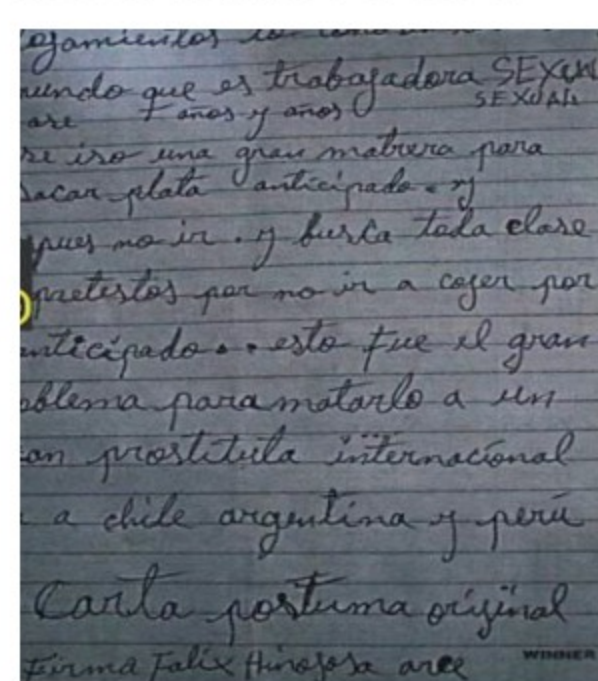 ojamientos
undo que es trabajadora SEXUAL
SEXUAL
años y años
se iso una gran matrera para
sacar plata anticipado. y
pues no ir. y busca toda clase
pretestos por no ir a cojer por
anticipado.. esto fue el gran
oblema para matarlo a un
an prostituta internacional
a chile argentina y perú
Carta postuma original
Firma Falix Hinojosa arce
WINNER